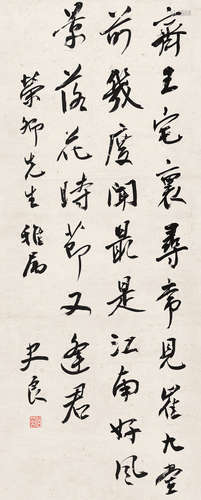 齊王宅裏尋常見崔九堂
前幾度聞最是江南好風
景落花時節又逢君
榮卿先生雅屬
史良